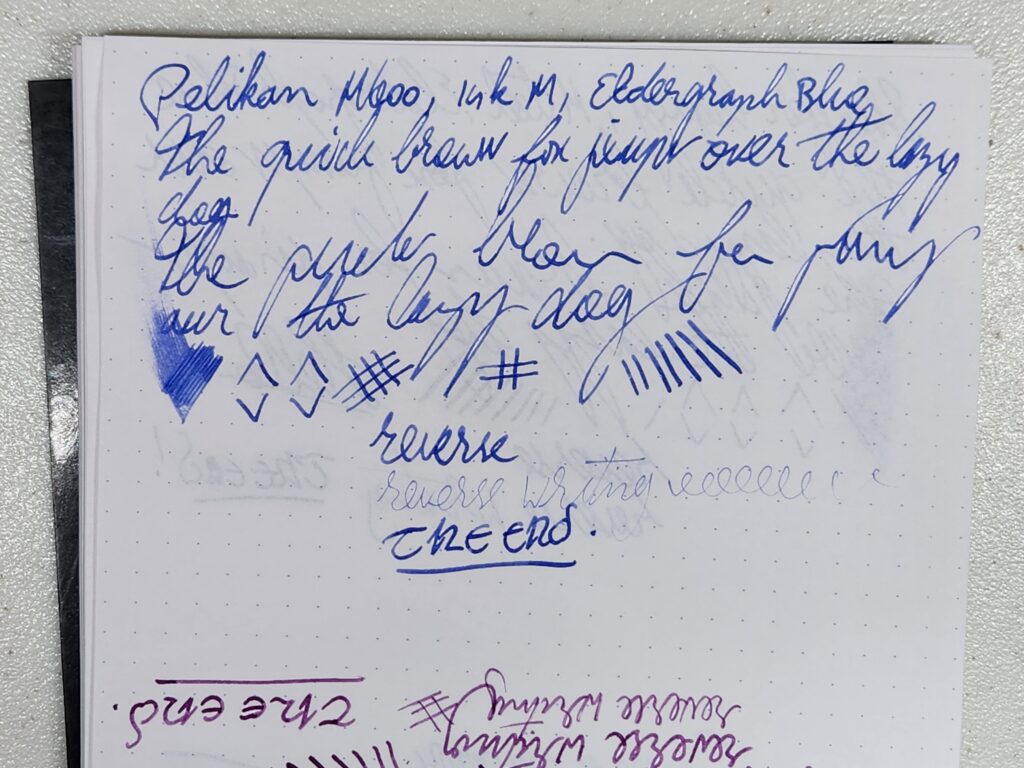 Pelikan M400, 14k M, Eldergraph Blue
The quick brown fox jumps over the lazy
dog
The quick brown fox jumps
over the lazy dog
reverse
reverse writing
THE END.
reverse writing
reverse writing
THE END.